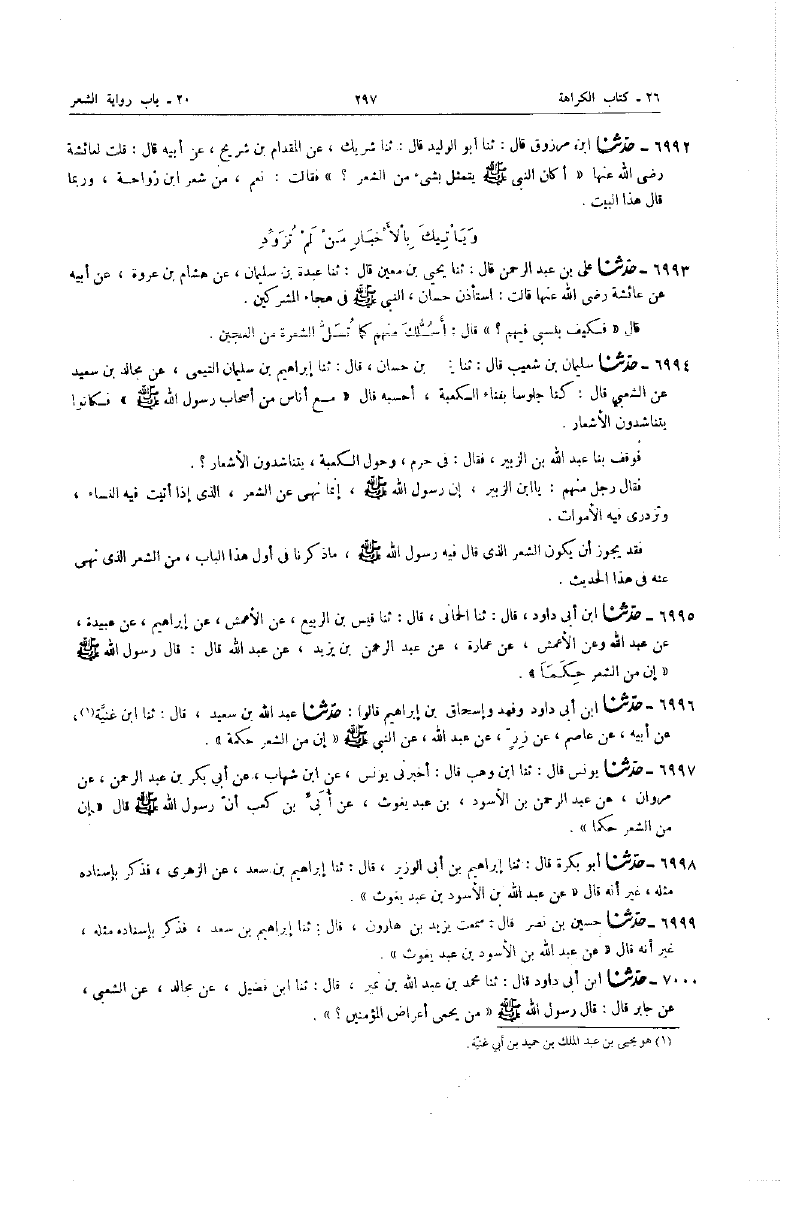 ٢٦ ـ كتاب الكراهة ٢٩٧ ٢٠ ـ باب رواية الشعر
٦٩٩٢ ـ حدّثنا ابن مرزوق قال : ثنا أبو الوليد قال : ثنا شريك ، عن المقدام بن شريح ، عن أبيه قال : قلت لعائشة
رضى الله عنها « أكان النبي ﷺ يتمثل بشىء من الشعر ؟ » فقالت : نعم ، من شعر ابن رواحة ، وربما
قال هذا البيت .
وَيَأتِيكَ بِالأَخبَارِ مَنْ لَمْ تُزَوِّدِ
٦٩٩٣ ـ حدّثنا على بن عبد الرحمن قال : ثنا يحيى بن معين قال : ثنا عبدة بن سليمان ، عن هشام بن عروة ، عن أبيه
عن عائشة رضى الله عنها قالت : استأذن حسان ، النبي ﷺ فى هجاء المشركين .
قال « فكيف بنسبى فيهم ؟ » قال : أَسُلُّكَ منهم كما تُسَلُّ الشعرة من العجين .
٦٩٩٤ ـ حدّثنا سليمان بن شعيب قال : ثنا بن حسان ، قال : ثنا إبراهيم بن سليمان التيمى ، عن مجالد بن سعيد
عن الشعبي قال : كنا جلوسا بفناء الكعبة ، أحسبه قال « مع أناس من أصحاب رسول الله ﷺ » فكانوا
يتناشدون الأشعار .
فوقف بنا عبد الله بن الزبير ، فقال : فى حرم ، وحول الكعبة ، يتناشدون الأشعار ؟ .
فقال رجل منهم : يا ابن الزبير ، إن رسول الله ﷺ ، إنما نهى عن الشعر ، الذى إذا أتيت فيه النساء ،
وتزدرى فيه الأموات .
فقد يجوز أن يكون الشعر الذى قال فيه رسول الله ﷺ ، ماذكرنا فى أول هذا الباب ، من الشعر الذى نهى
عنه فى هذا الحديث .
٦٩٩٥ ـ حدّثنا ابن أبى داود ، قال : ثنا الحمانى ، قال : ثنا قيس بن الربيع ، عن الأعمش ، عن إبراهيم ، عن عبيدة ،
عن عبد الله وعن الأعمش ، عن عمارة ، عن عبد الرحمن بن يزيد ، عن عبد الله قال : قال رسول الله ﷺ
« إن من الشعر حِكَمًا » .
٦٩٩٦ ـ حدّثنا ابن أبى داود وفهد وإسحاق بن إبراهيم قالوا : حدّثنا عبد الله بن سعيد ، قال : ثنا ابن غنيَّة(١)،
عن أبيه ، عن عاصم ، عن زر ، عن عبد الله ، عن النبي ﷺ « إن من الشعر حكمة » .
٦٩٩٧ ـ حدّثنا يونس قال : ثنا ابن وهب قال : أخبرنى يونس ، عن ابن شهاب ، عن أبي بكر بن عبد الرحمن ، عن
مروان ، عن عبد الرحمن بن الأسود ، بن عبد يغوث ، عن أُبَيِّ بن كعب أنّ رسول الله ﷺ قال « إن
من الشعر حكما » .
٦٩٩٨ ـ حدّثنا أبو بكرة قال : ثنا إبراهيم بن أبى الوزير ، قال : ثنا إبراهيم بن سعد ، عن الزهرى ، فذكر بإسناده
مثله ، غير أنه قال « عن عبد الله بن الأسود بن عبد يغوث » .
٦٩٩٩ ـ حدّثنا حسين بن نصر قال : سمعت يزيد بن هارون ، قال : ثنا إبراهيم بن سعد ، فذكر بإسناده مثله ،
غير أنه قال « عن عبد الله بن الأسود بن عبد يغوث » .
٧٠٠٠ ـ حدّثنا ابن أبى داود قال : ثنا محمد بن عبد الله بن نمير ، قال : ثنا ابن فضيل ، عن مجالد ، عن الشعبى ،
عن جابر قال : قال رسول الله ﷺ « من يحمى أعراض المؤمنين ؟ » .
(١) هو يحيى بن عبد الملك بن حميد بن أبي غنيّة .